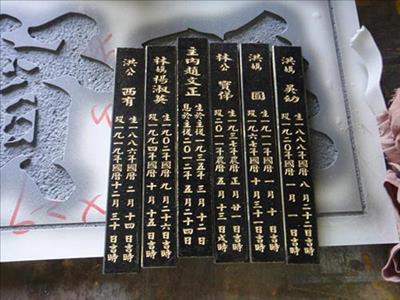 洪媽 吳幼
生一八八八年國曆八月二十二日吉時
歿一九二〇年國曆一月一日吉時
洪媽 圓
生一九一一年國曆一月十日吉時
歿一九六七年國曆十月三十一日吉時
林公 寶俤
生一九三七年農曆正月廿一日吉時
歿二〇一一年農曆五月十三日戌時
主內趙文正
生於主後一九三五年三月十二日
息於主後二〇一二年五月二十四日
林媽楊淑英
生一九〇二年國曆九月二十六日吉時
歿一九九四年國曆十月十五日吉時
洪公 西有
生一八八六年國曆二月十四日吉時
歿一九一九年國曆十二月三十日吉時